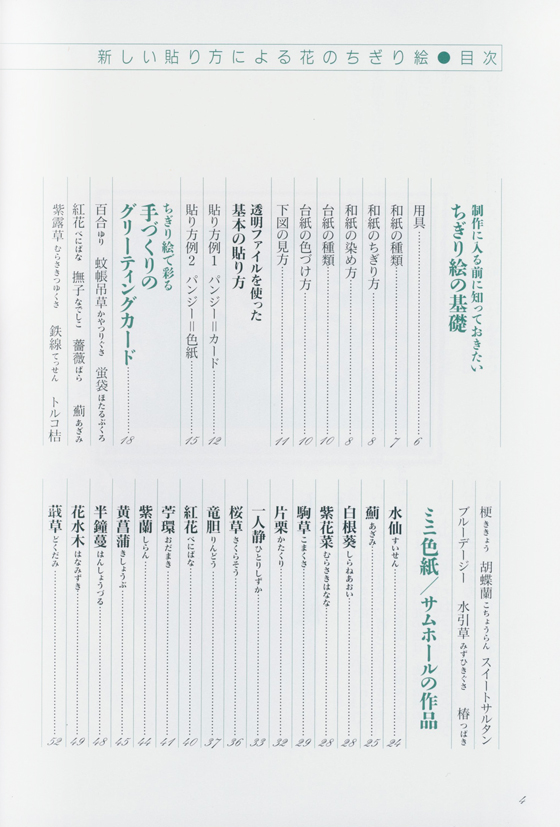 新しい貼り方による花のちぎり絵●目次
制作に入る前に知っておきたい
ちぎり絵の基礎
用具……6
和紙の種類……7
和紙のちぎり方……8
和紙の染め方……8
台紙の種類……10
台紙の色づけ方……10
下図の見方……11
透明ファイルを使った
基本の貼り方
貼り方例1 パンジー=カード……12
貼り方例2 パンジー=色紙……15
ちぎり絵で彩る
手づくりの
グリーティングカード……18
百合ゆり 蚊帳吊草かやつりぐさ 蛍袋ほたるぶくろ
紅花べにばな 撫子なでしこ 薔薇ばら 薊あざみ
紫露草むらさきつゆくさ 鉄線てっせん トルコ桔
梗ききょう 胡蝶蘭こちょうらん スイートサルタン
ブルーデージー 水引草みずひきぐさ 椿つばき
ミニ色紙/サムホールの作品
水仙すいせん……24
薊あざみ……25
白根葵しらねあおい……28
紫花菜むらさきはなな……28
駒草こまくさ……29
片栗かたくり……32
一人静ひとりしずか……33
桜草さくらそう……36
竜胆りんどう……37
紅花べにばな……40
苧環おだまき……41
紫蘭しらん……44
黄菖蒲きしょうぶ……45
半鐘蔓はんしょうづる……48
花水木はなみずき……49
蕺草どくだみ……52
4